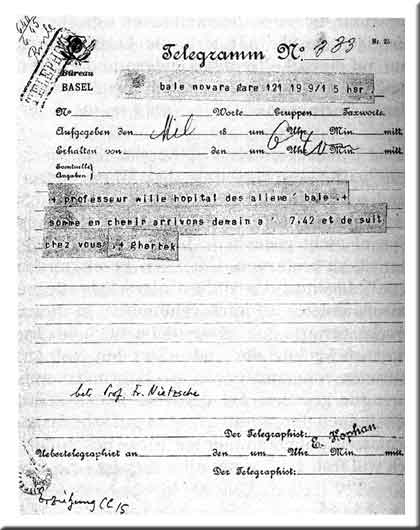 TELEPHON
Telegramm No. 333
Nr. 25
Bureau
BASEL
bale novara gare 121 19 9/1 5 hsr
No Worte Gruppen Taxworte.
Aufgegeben den Mil 18 um Uhr Min. mitt.
Erhalten von den um Uhr Min. mitt.
Eventuelle
Angaben
+ professeur wille hopital des aliene' bale .+
somme en chemir arrivons demain a' 7.42 et de suit
chez vous .+
betr Prof. Fr. Nietzsche
Der Telegraphist: E. Hophan
Uebertelegraphirt an den um Uhr Min. mitt.
Der Telegraphist: